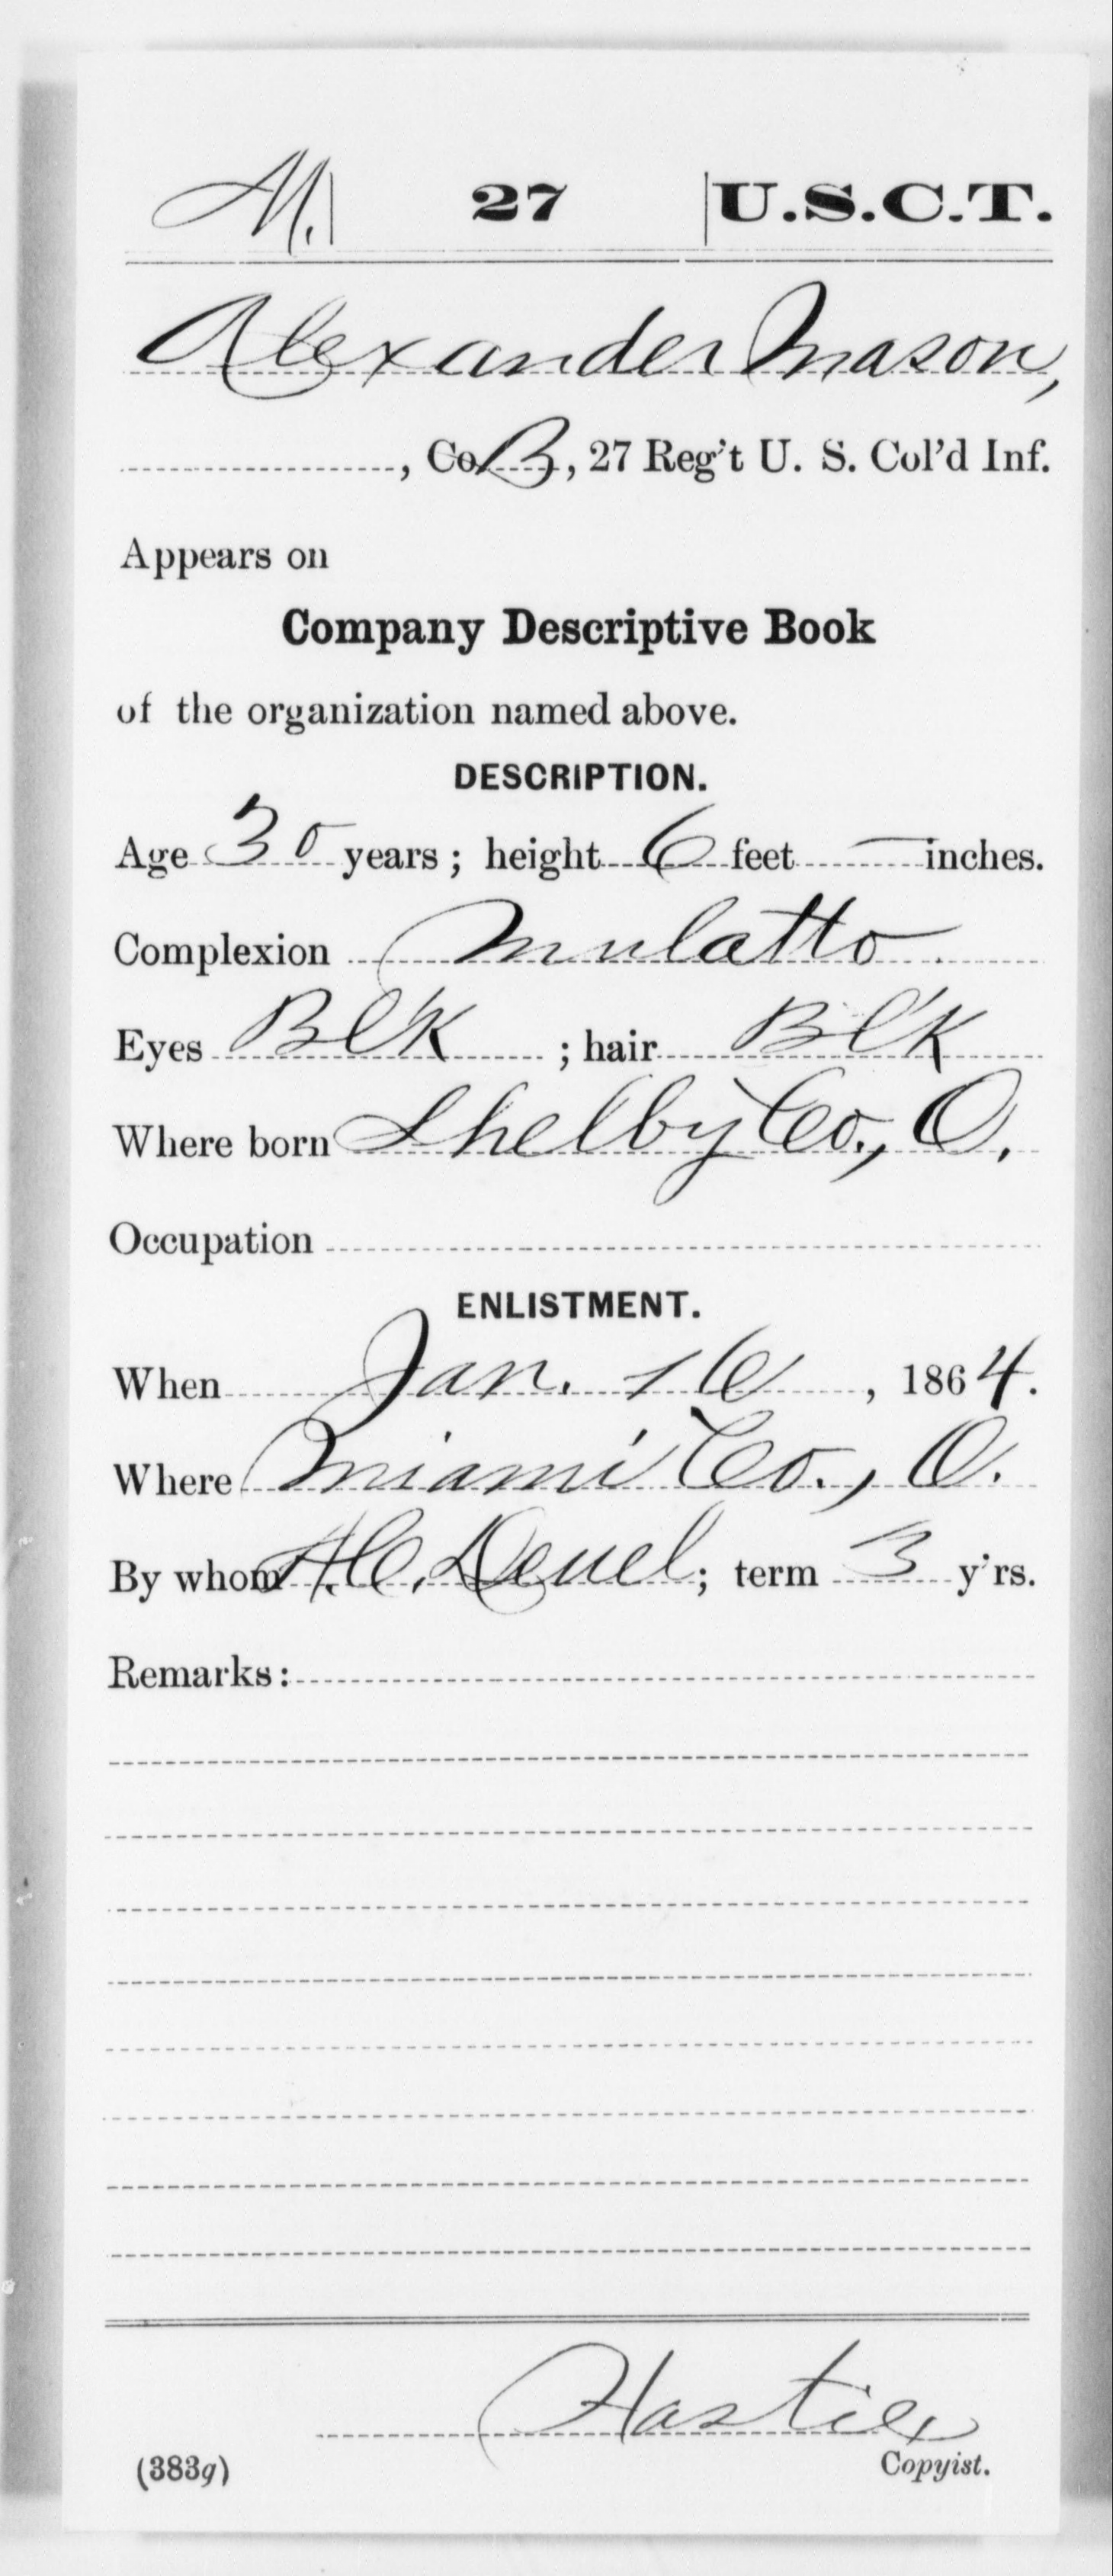 M. | 27 | U.S.C.T.
Alexander Mason,
, Co. B, 27 Reg't U. S. Col'd Inf.
Appears on
Company Descriptive Book
of the organization named above.
DESCRIPTION.
Age 30 years; height 6 feet — inches.
Complexion Mulatto
Eyes Bl'k; hair Bl'k
Where born Shelby Co., O.
Occupation
ENLISTMENT.
When Jan. 16, 1864.
Where Miami Co., O.
By whom H.C. Deuel; term 3 y'rs.
Remarks:
Copyist.
(383g)